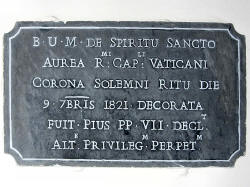 B·U·M·DE SPIRITU SANCTO
AUREA R:CAP: VATICANI
CORONA SOLEMNI RITU DIE
9·7BRIS 1821 DECORATA
FUIT·PIUS PP·VII·DECL.T
ALT. PRIVILEG·PERPET